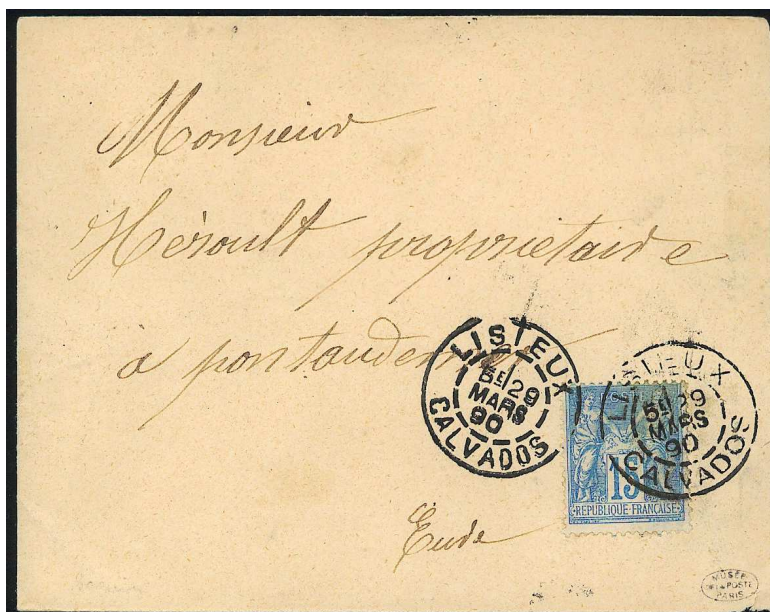 Monsieur
Héroult propriétaire
à pontaudemer
LISIEUX
5E 29
MARS
90
CALVADOS
LISIEUX
5E 29
MARS
90
CALVADOS
15
REPUBLIQUE FRANÇAISE
Eude
MUSÉE
DE LA POSTE
PARIS